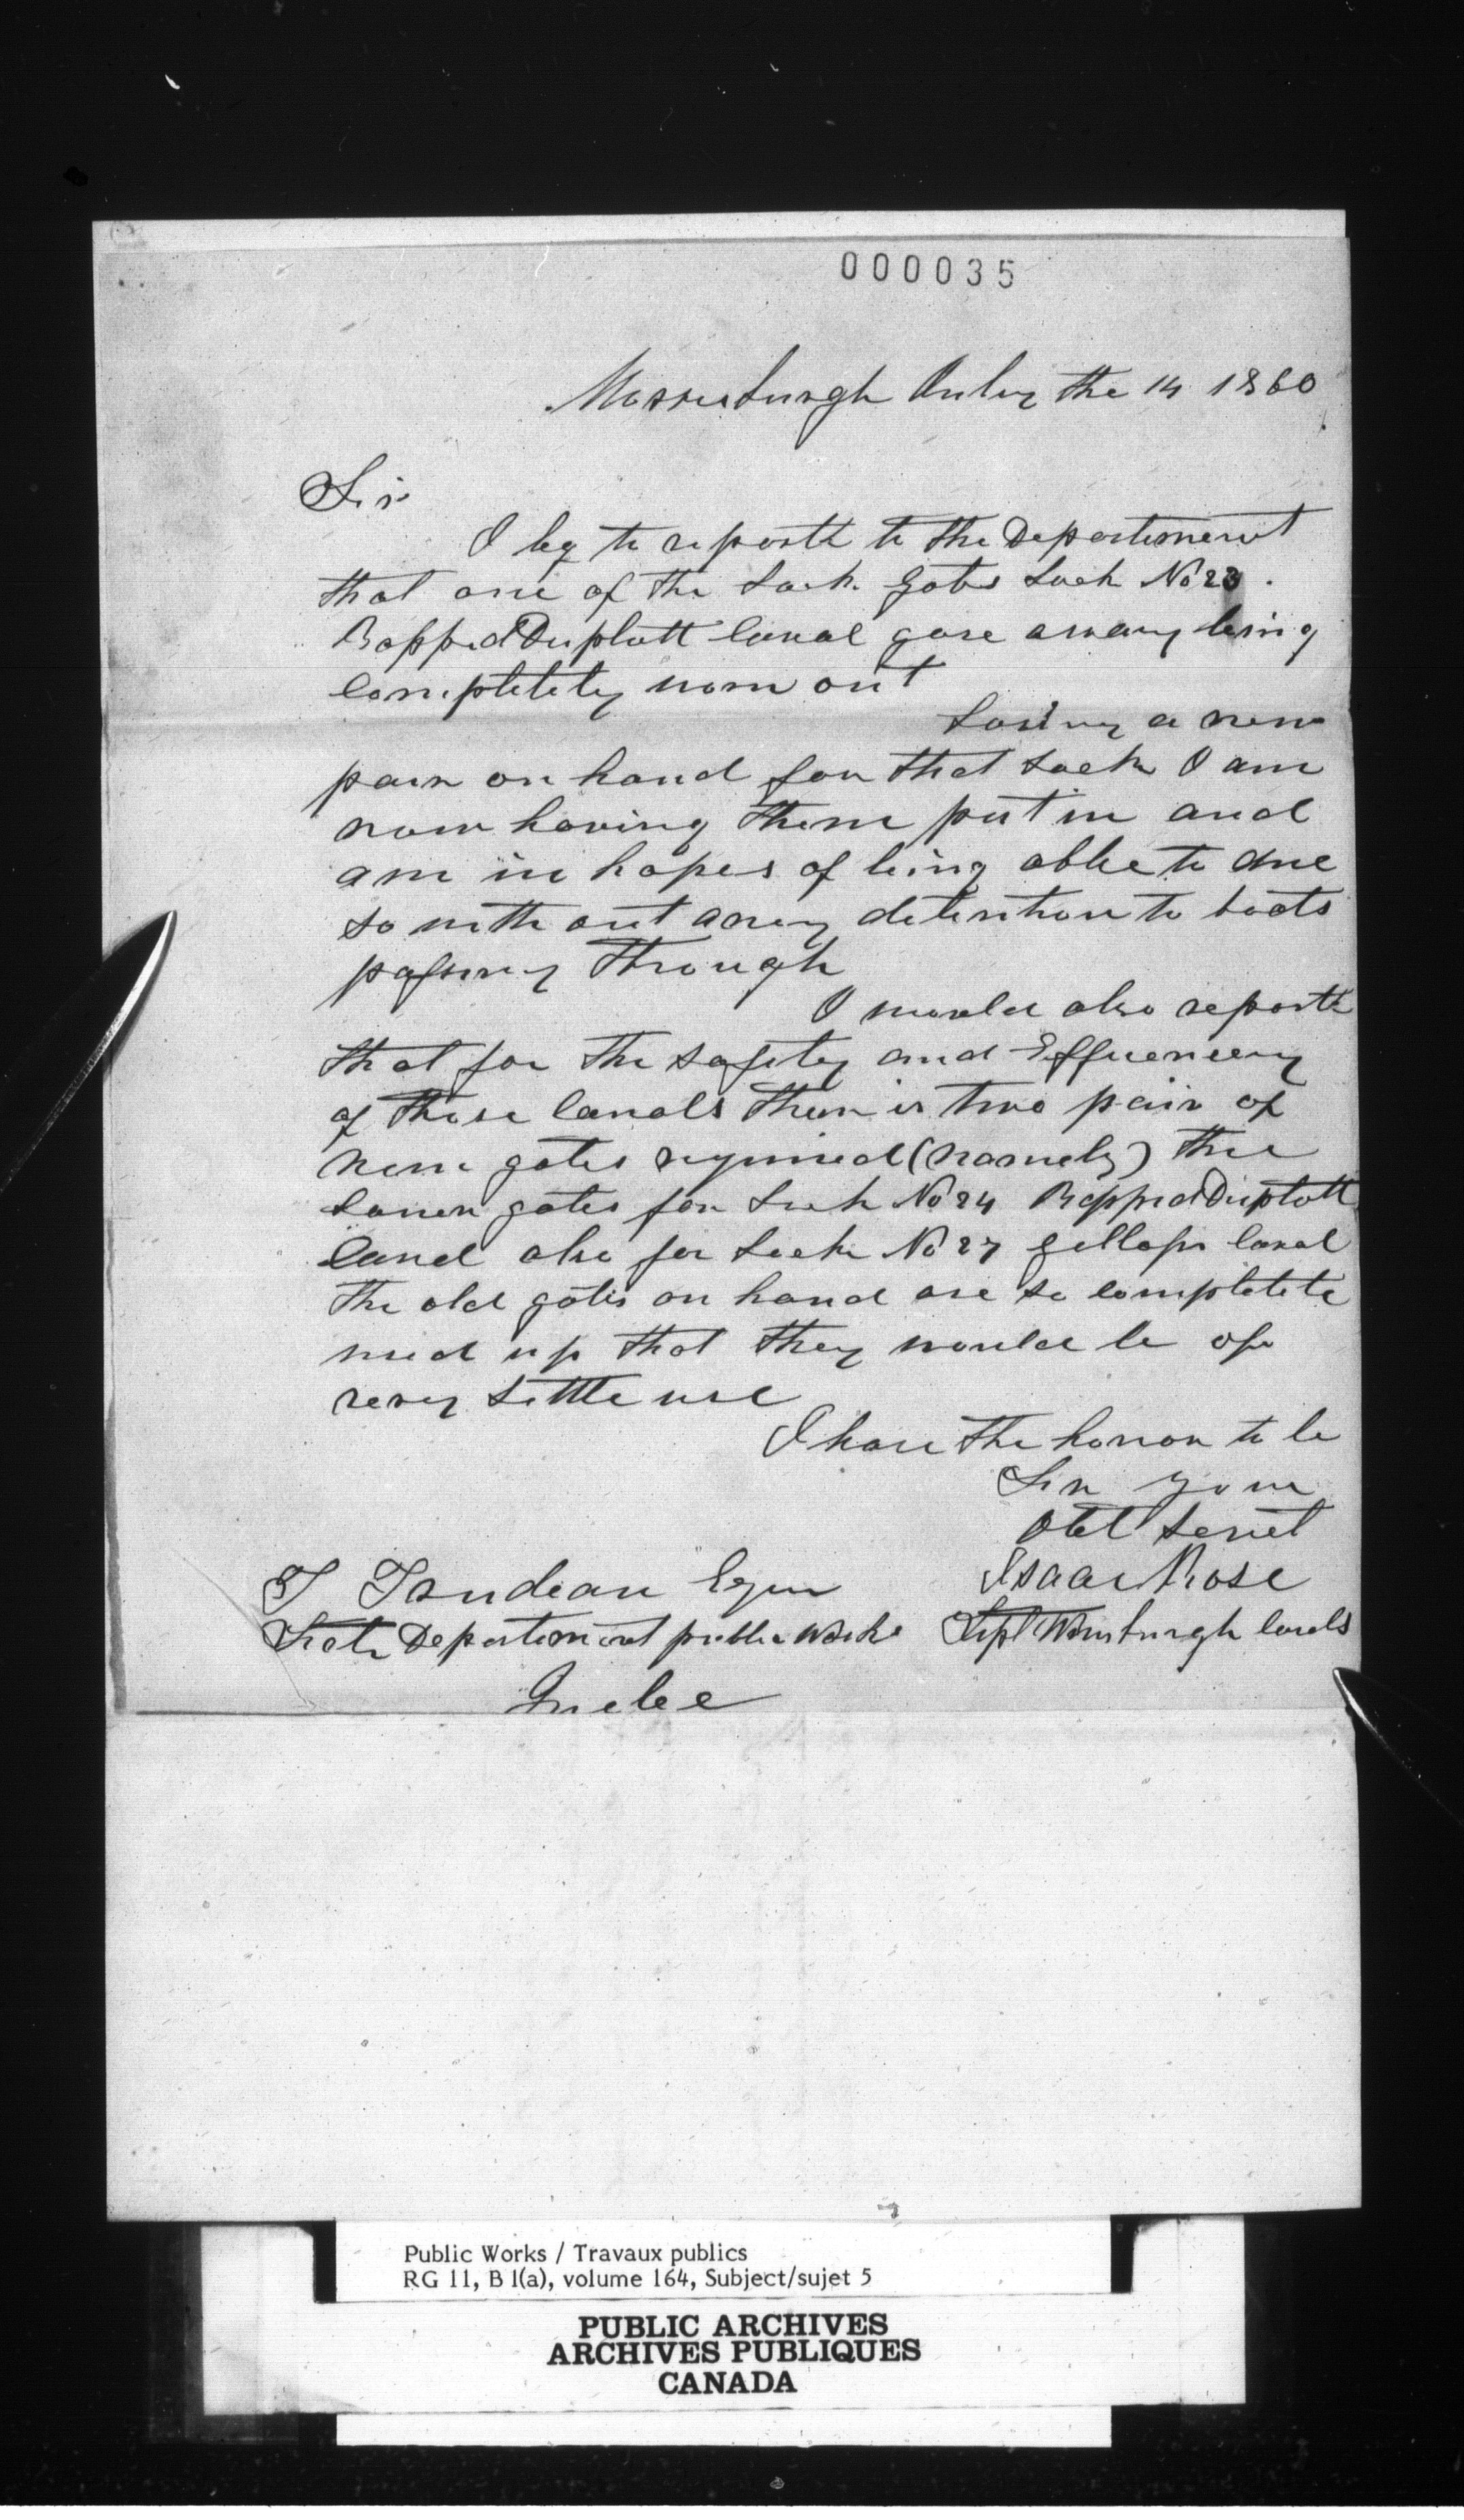 000035
Morrisburgh July the 14 1860
Sir
I beg to reportt to the Departement
that one of the Lock Gates Lock No 23
Rappid Duplatt Canal gave away being
completely worn out
having a new
pair on hand for that Lock I am
now having them put in and
am in hopes of being able to due
so with out any detention to boats
passing through
I would also reportt
that for the safety and Efficiency
of these Canals their is two pair of
new gates required (namely) the
Lower gates for Lock No 24 Rappid Duplatt
Canal also for Lock No 27 Gallops Canal
the old gates on hand are so compleet
used up that they would be of
very Little use
I have the honor to be
Sir your
Obt Servt
Isaac Rose
T Trudeau Esqur
Supt Wmsburgh Canals
Secty Departement public Works
Quebec
Public Works / Travaux publics
RG 11, B 1(a), volume 164, Subject/sujet 5
PUBLIC ARCHIVES
ARCHIVES PUBLIQUES
CANADA